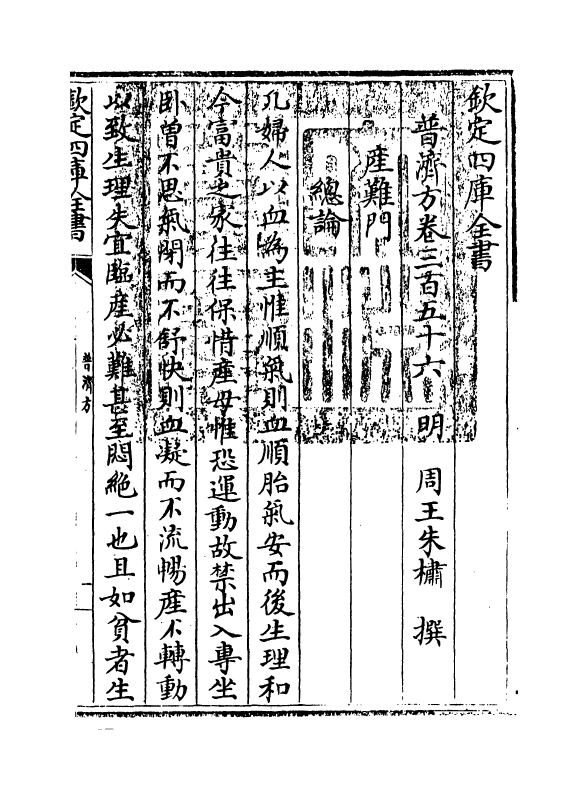 欽定四庫全書
普濟方卷三百五十六　明　周王朱橚　撰
産難門
總論
凡婦人以血為主惟順氣則血順胎氣安而後生理和
今富貴之家往往保惜産母惟恐運動故禁出入專坐
卧曽不思氣閉而不舒快則血凝而不流暢産不轉動
以致生理失宜臨産必難甚至悶絶一也且如貧者生
欽定四庫全書
普濟方
一